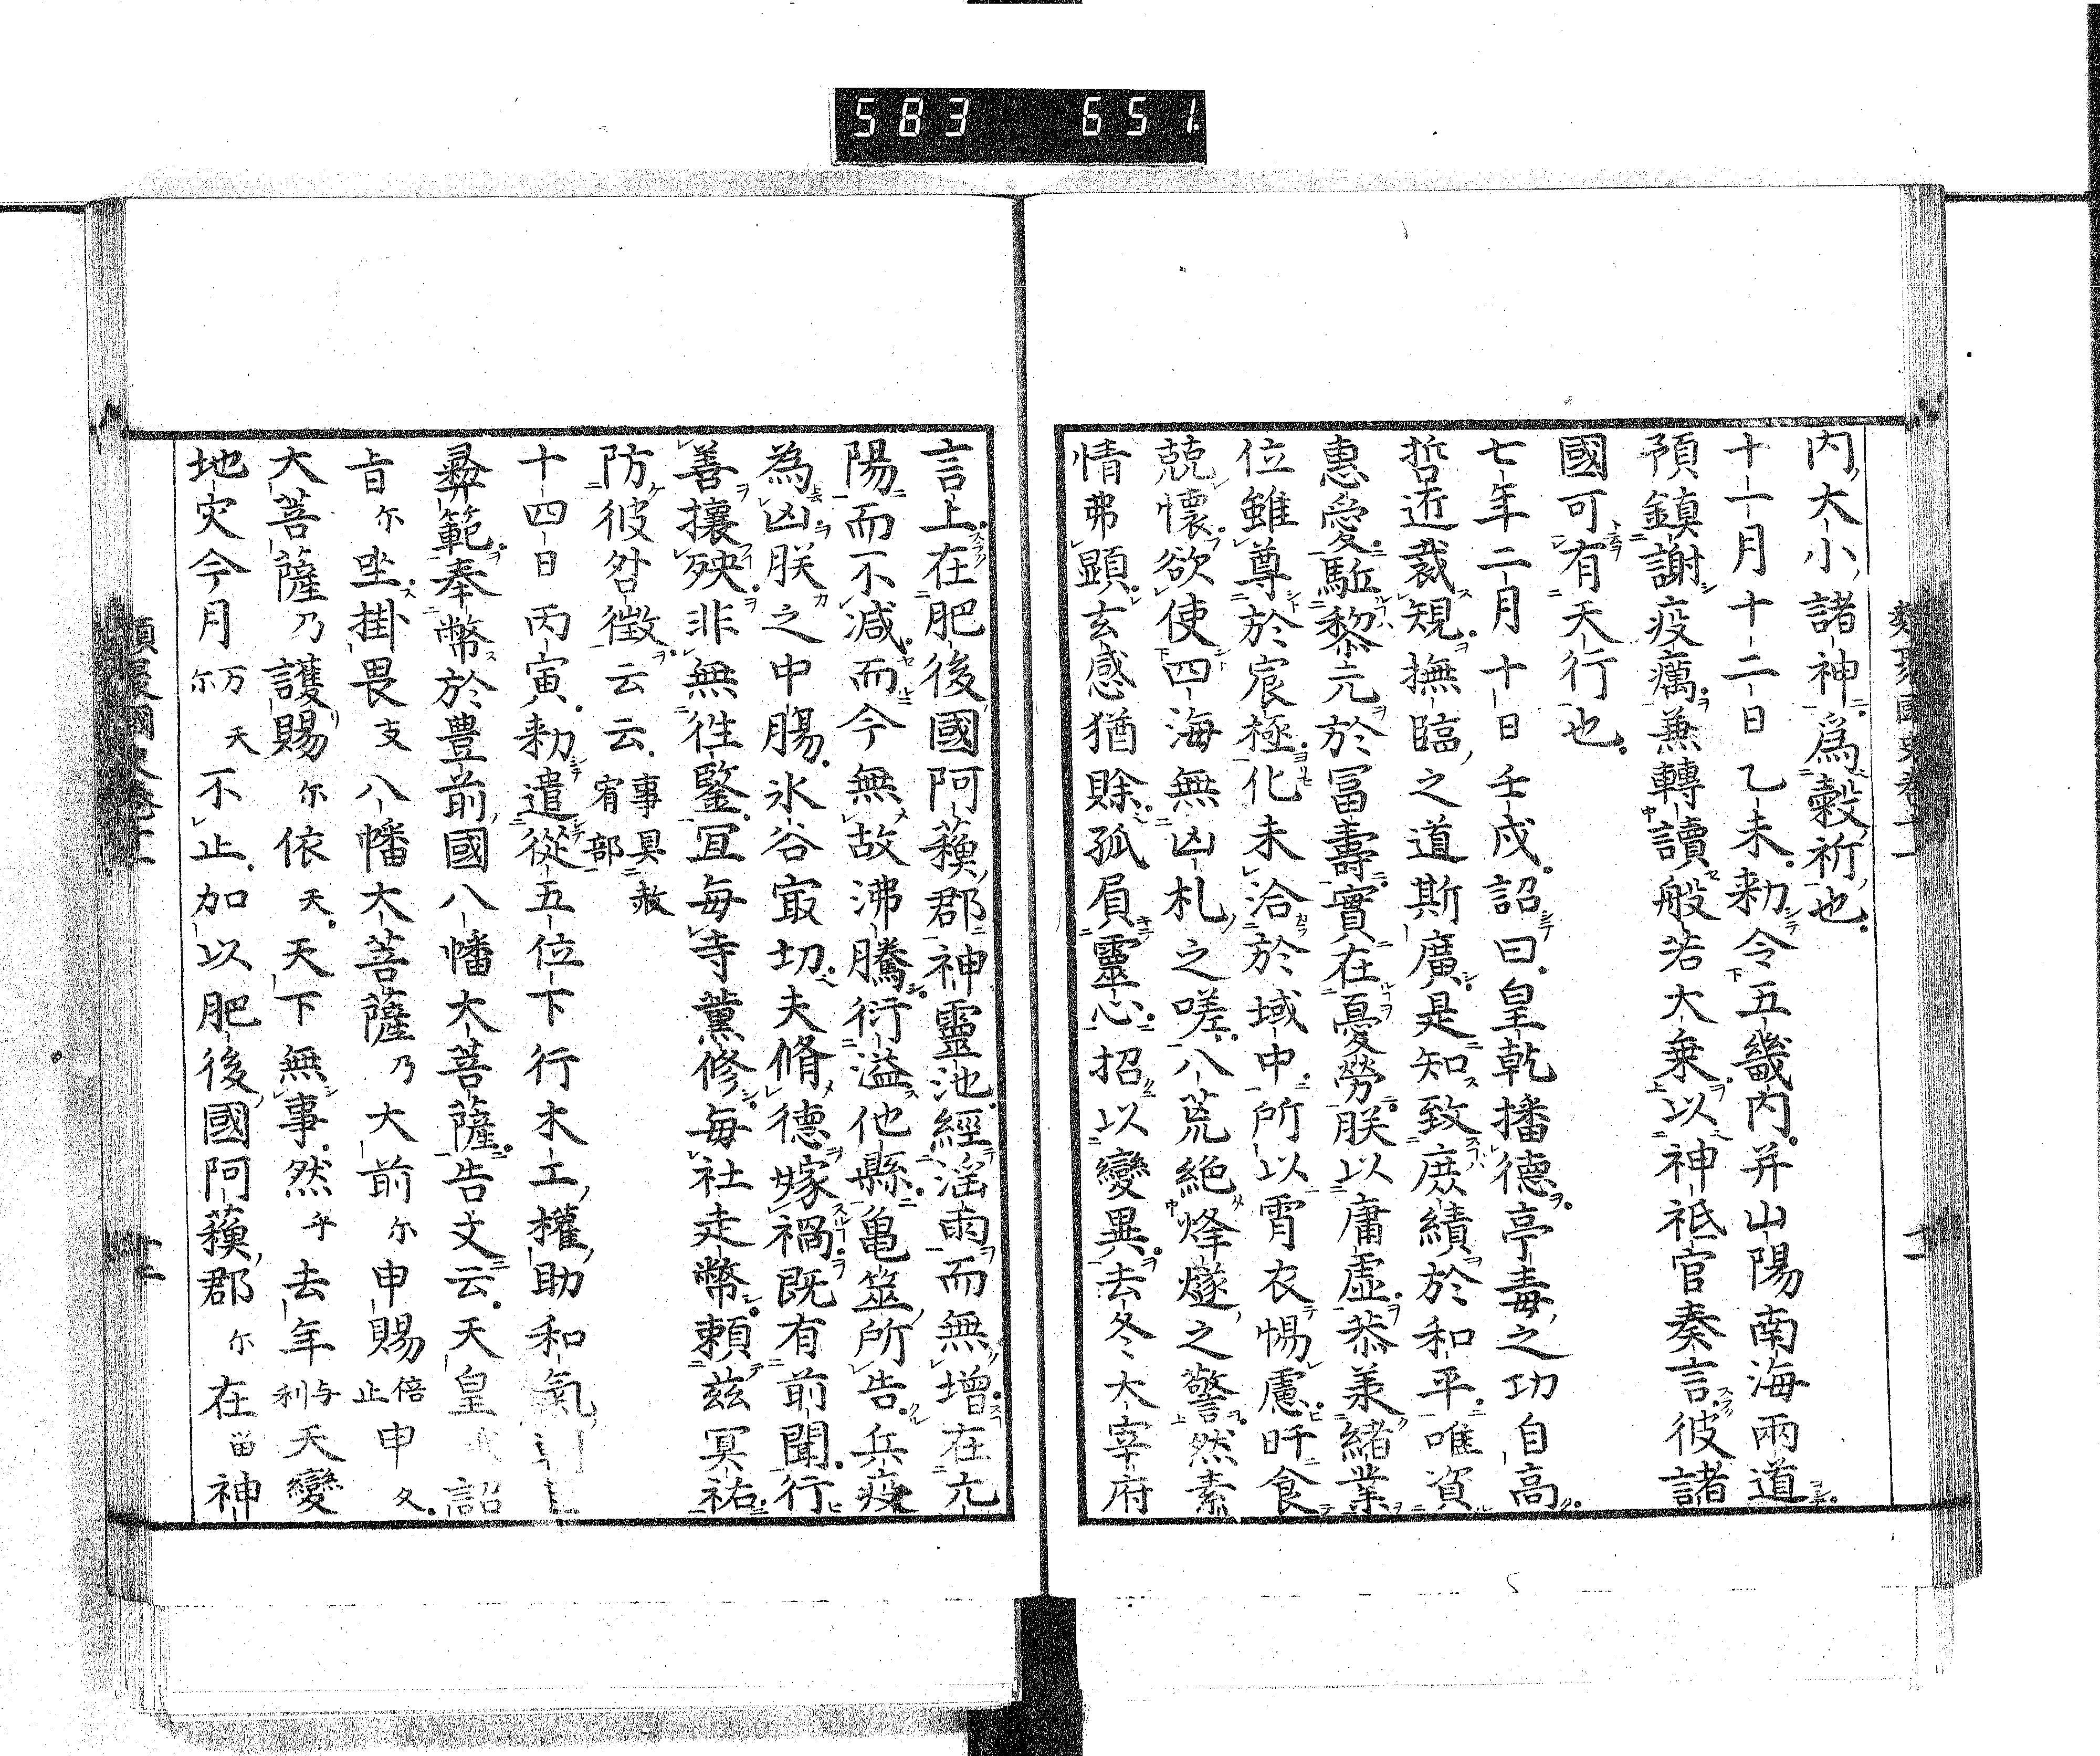 583 651
内大小諸神爲穀祈也
十一月十二日乙未勑令五畿内并山陽南海兩道
預鎮謝疫癘兼轉讀般若大乗以神祇官奏言彼諸
國可有天行也
七年二月十日壬戌詔曰皇乾播德亭毒之功自高
哲迯裁規撫臨之道斯廣是知致庶績於和平唯資
惠愛駈黎元於冨壽實在憂勞朕以庸虚恭羕緒業
位雖尊於宸極化未洽於域中所以霄衣惕慮旰食
兢懷欲使四海無凶札之嗟八荒絶烽燧之警然素
情弗顕玄感猶賖孤負靈心招以變異去冬大宰府
類聚國史卷十一
十一
言上在肥後國阿蘓郡神靈池經淫雨而無增在亢
陽而不减而今無故沸騰衍溢他縣亀筮所告兵疫
為凶朕之中膓氷谷㝡切夫脩德嫁禍既有前聞行
善攘殃非無徃鑒冝毎寺薫修毎社走幣頼兹冥祐
防彼咎徴云云事具赦宥部
十四日丙寅勑遣從五位下行木工權助和氣
彝範奉幣於豊前國八幡大菩薩告文云天皇我詔
旨尓坐掛畏支八幡大菩薩乃大前尓申賜倍止申久
大菩薩乃護賜尓依天天下無事然乎去年与利天變
地灾今月万尓天不止加以肥後國阿蘓郡尓在留神
類聚國史卷十一
十二